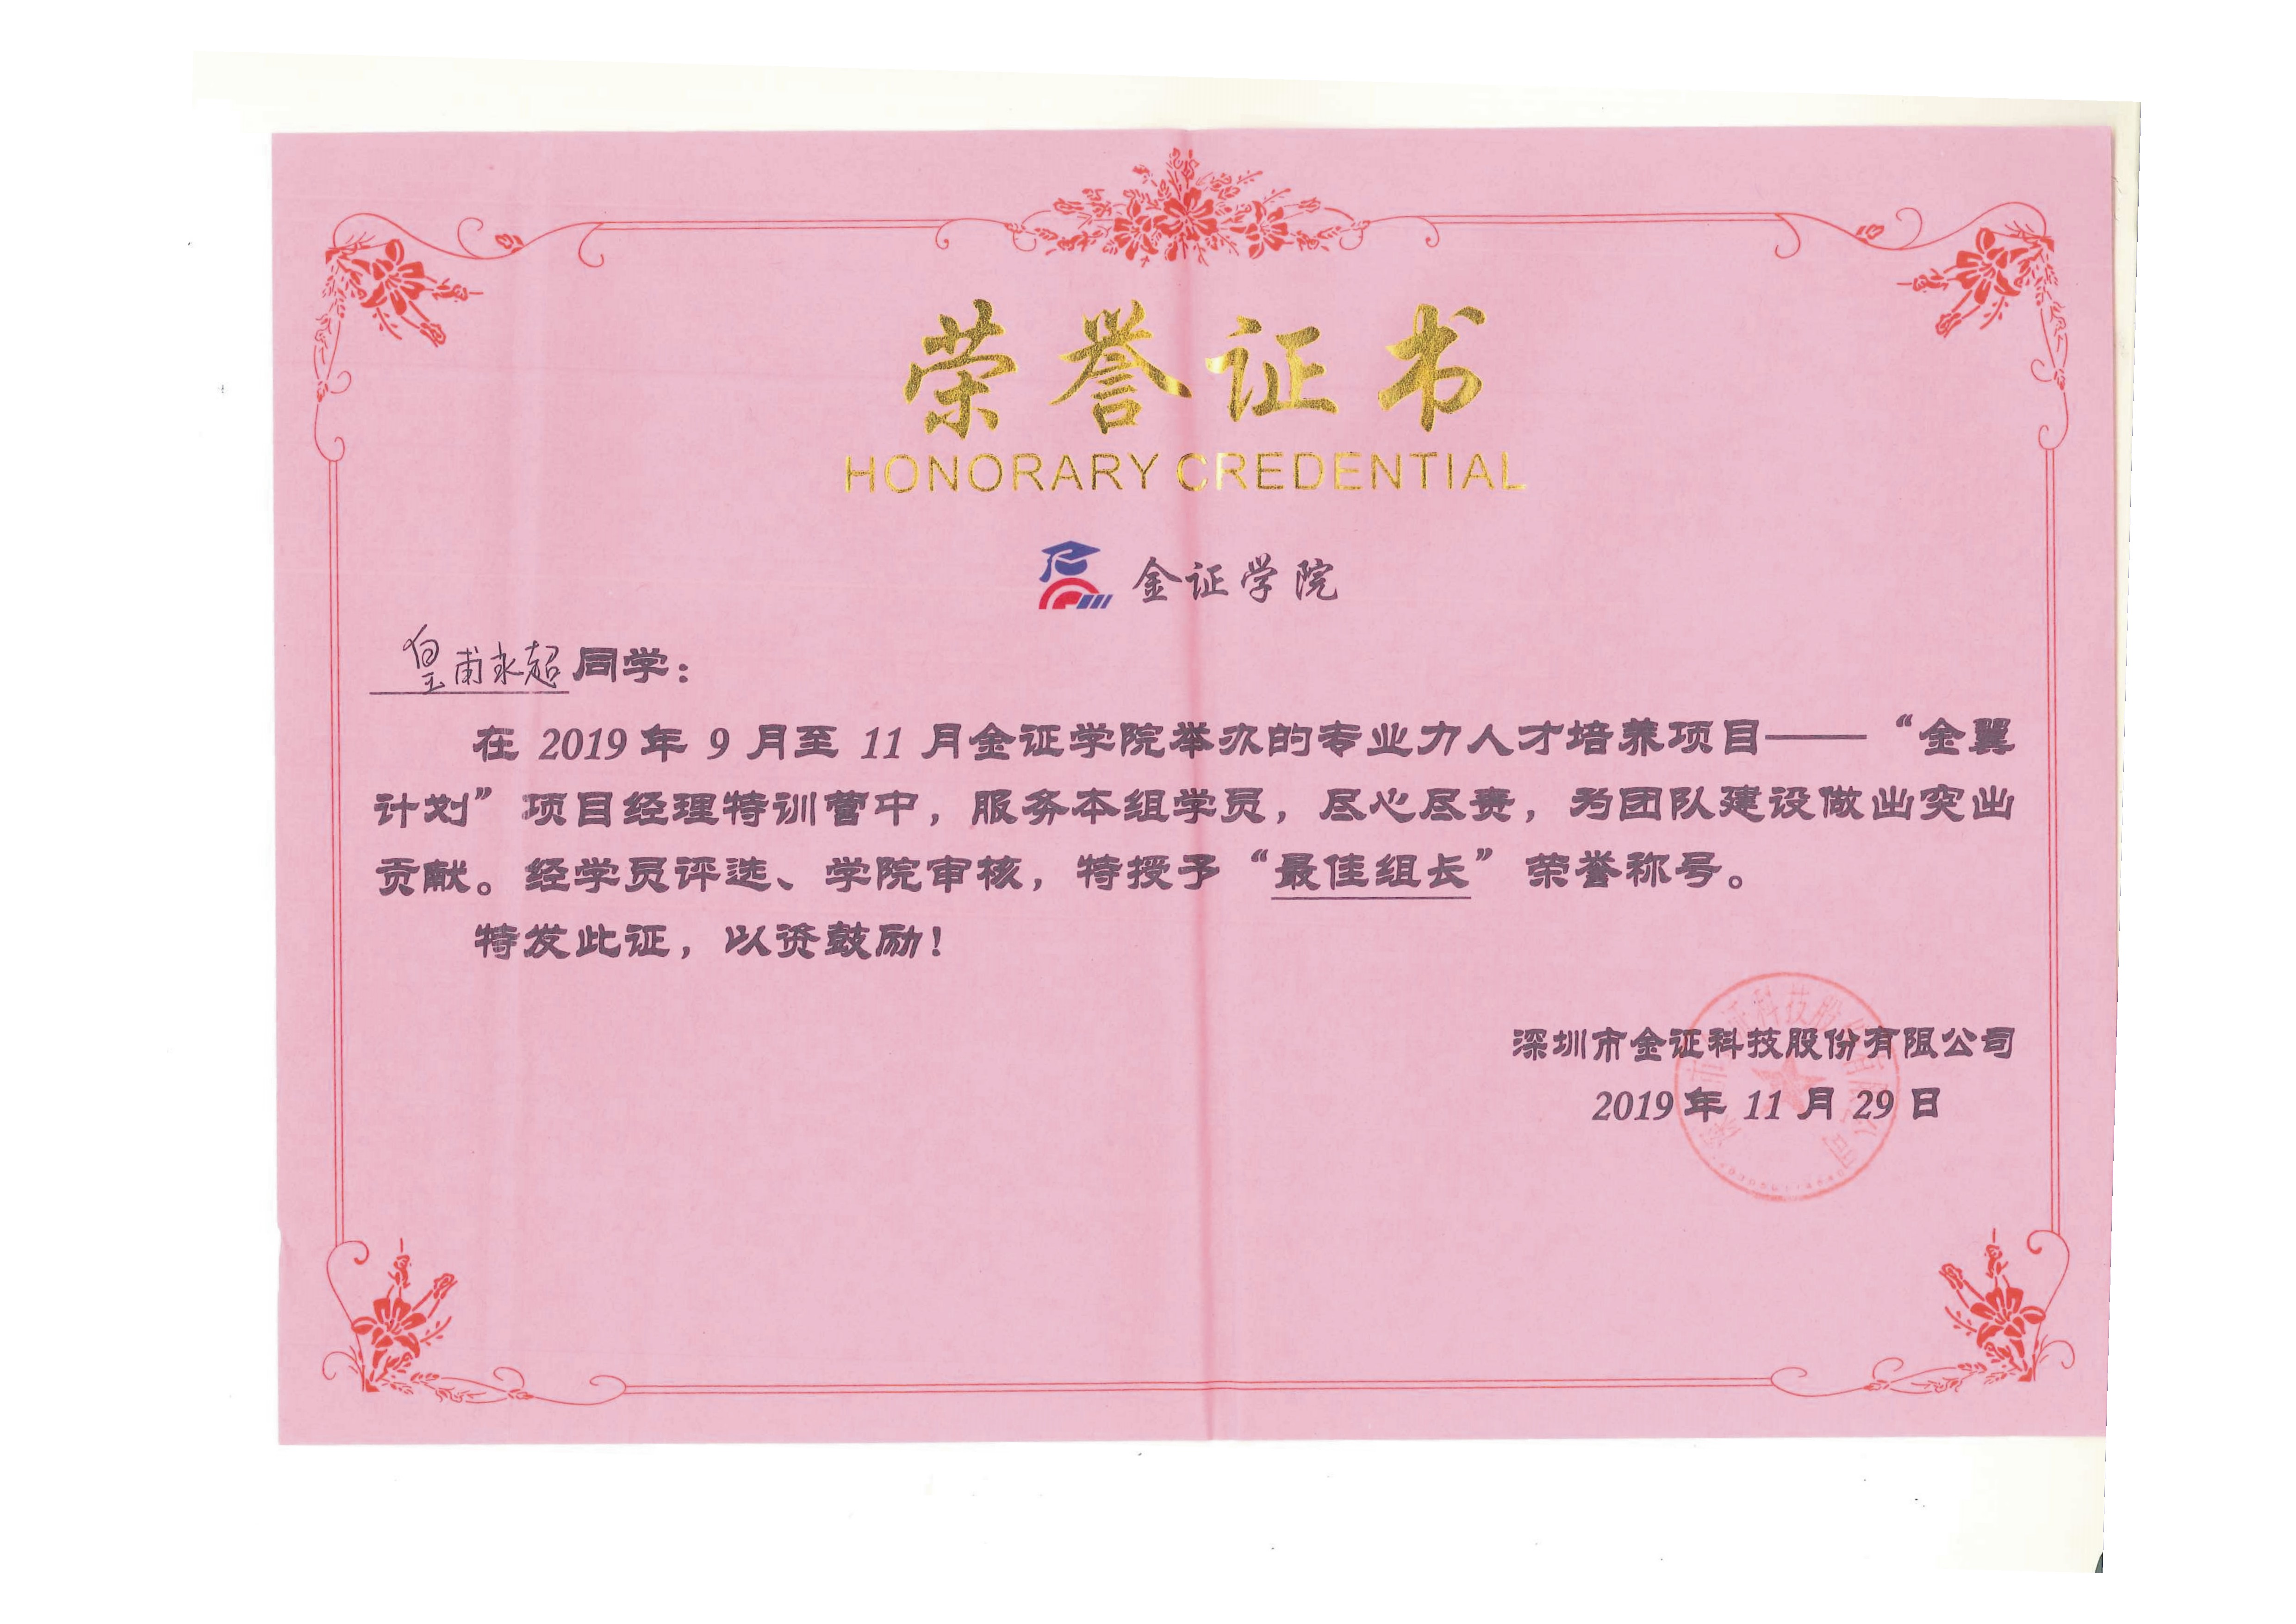 荣誉证书
HONORARY CREDENTIAL
金证学院
皇甫永超同学：
在 2019 年 9 月至 11 月金证学院举办的专业力人才培养项目——“金翼
计划”项目经理特训营中，服务本组学员，尽心尽责，为团队建设做出突出
贡献。经学员评选、学院审核，特授予“最佳组长”荣誉称号。
特发此证，以资鼓励！
深圳市金证科技股份有限公司
2019 年 11 月 29 日
深圳市金证科技股份有限公司